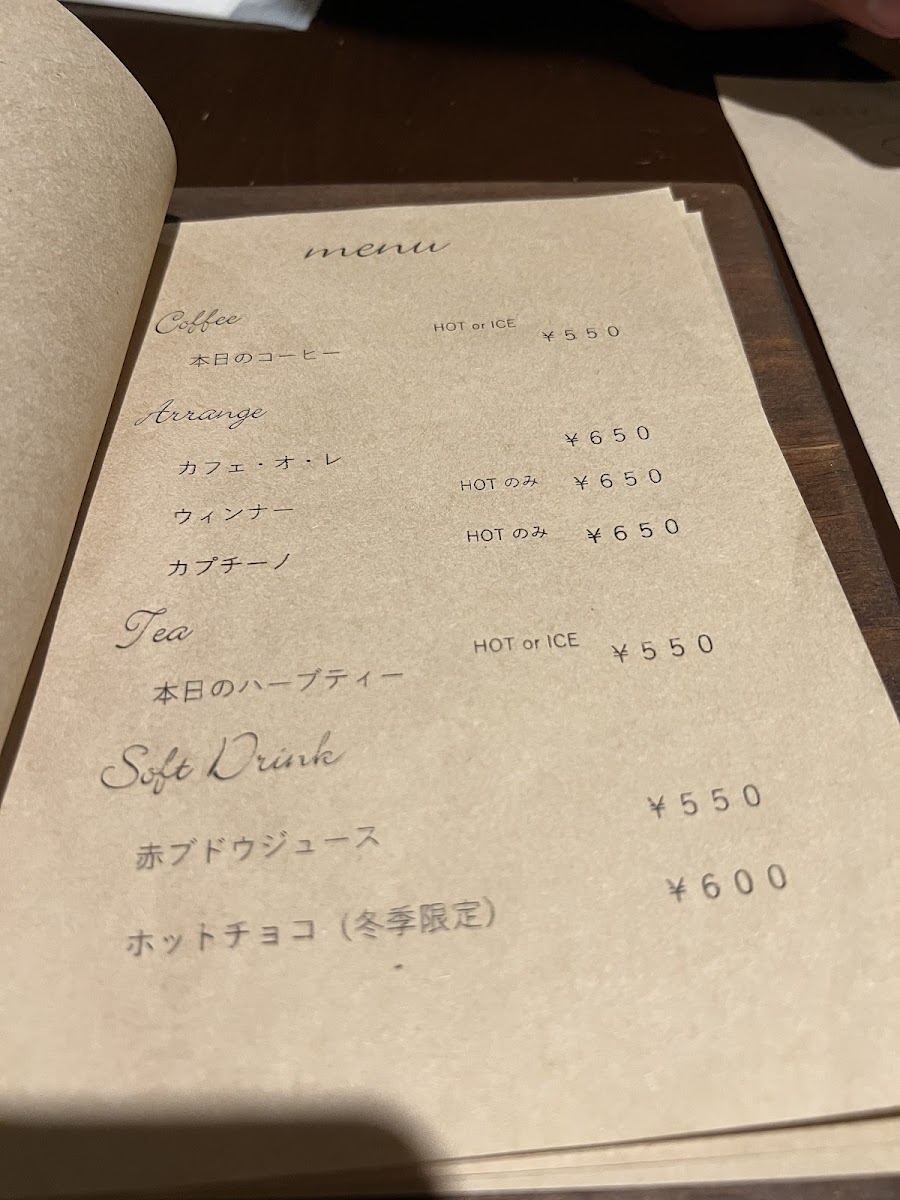 menu
Coffee
本日のコーヒー HOT or ICE ¥550
Arrange
カフェ・オ・レ ¥650
ウィンナー HOT のみ ¥650
カプチーノ HOT のみ ¥650
Tea
本日のハーブティー HOT or ICE ¥550
Soft Drink
赤ブドウジュース ¥550
ホットチョコ（冬季限定） ¥600